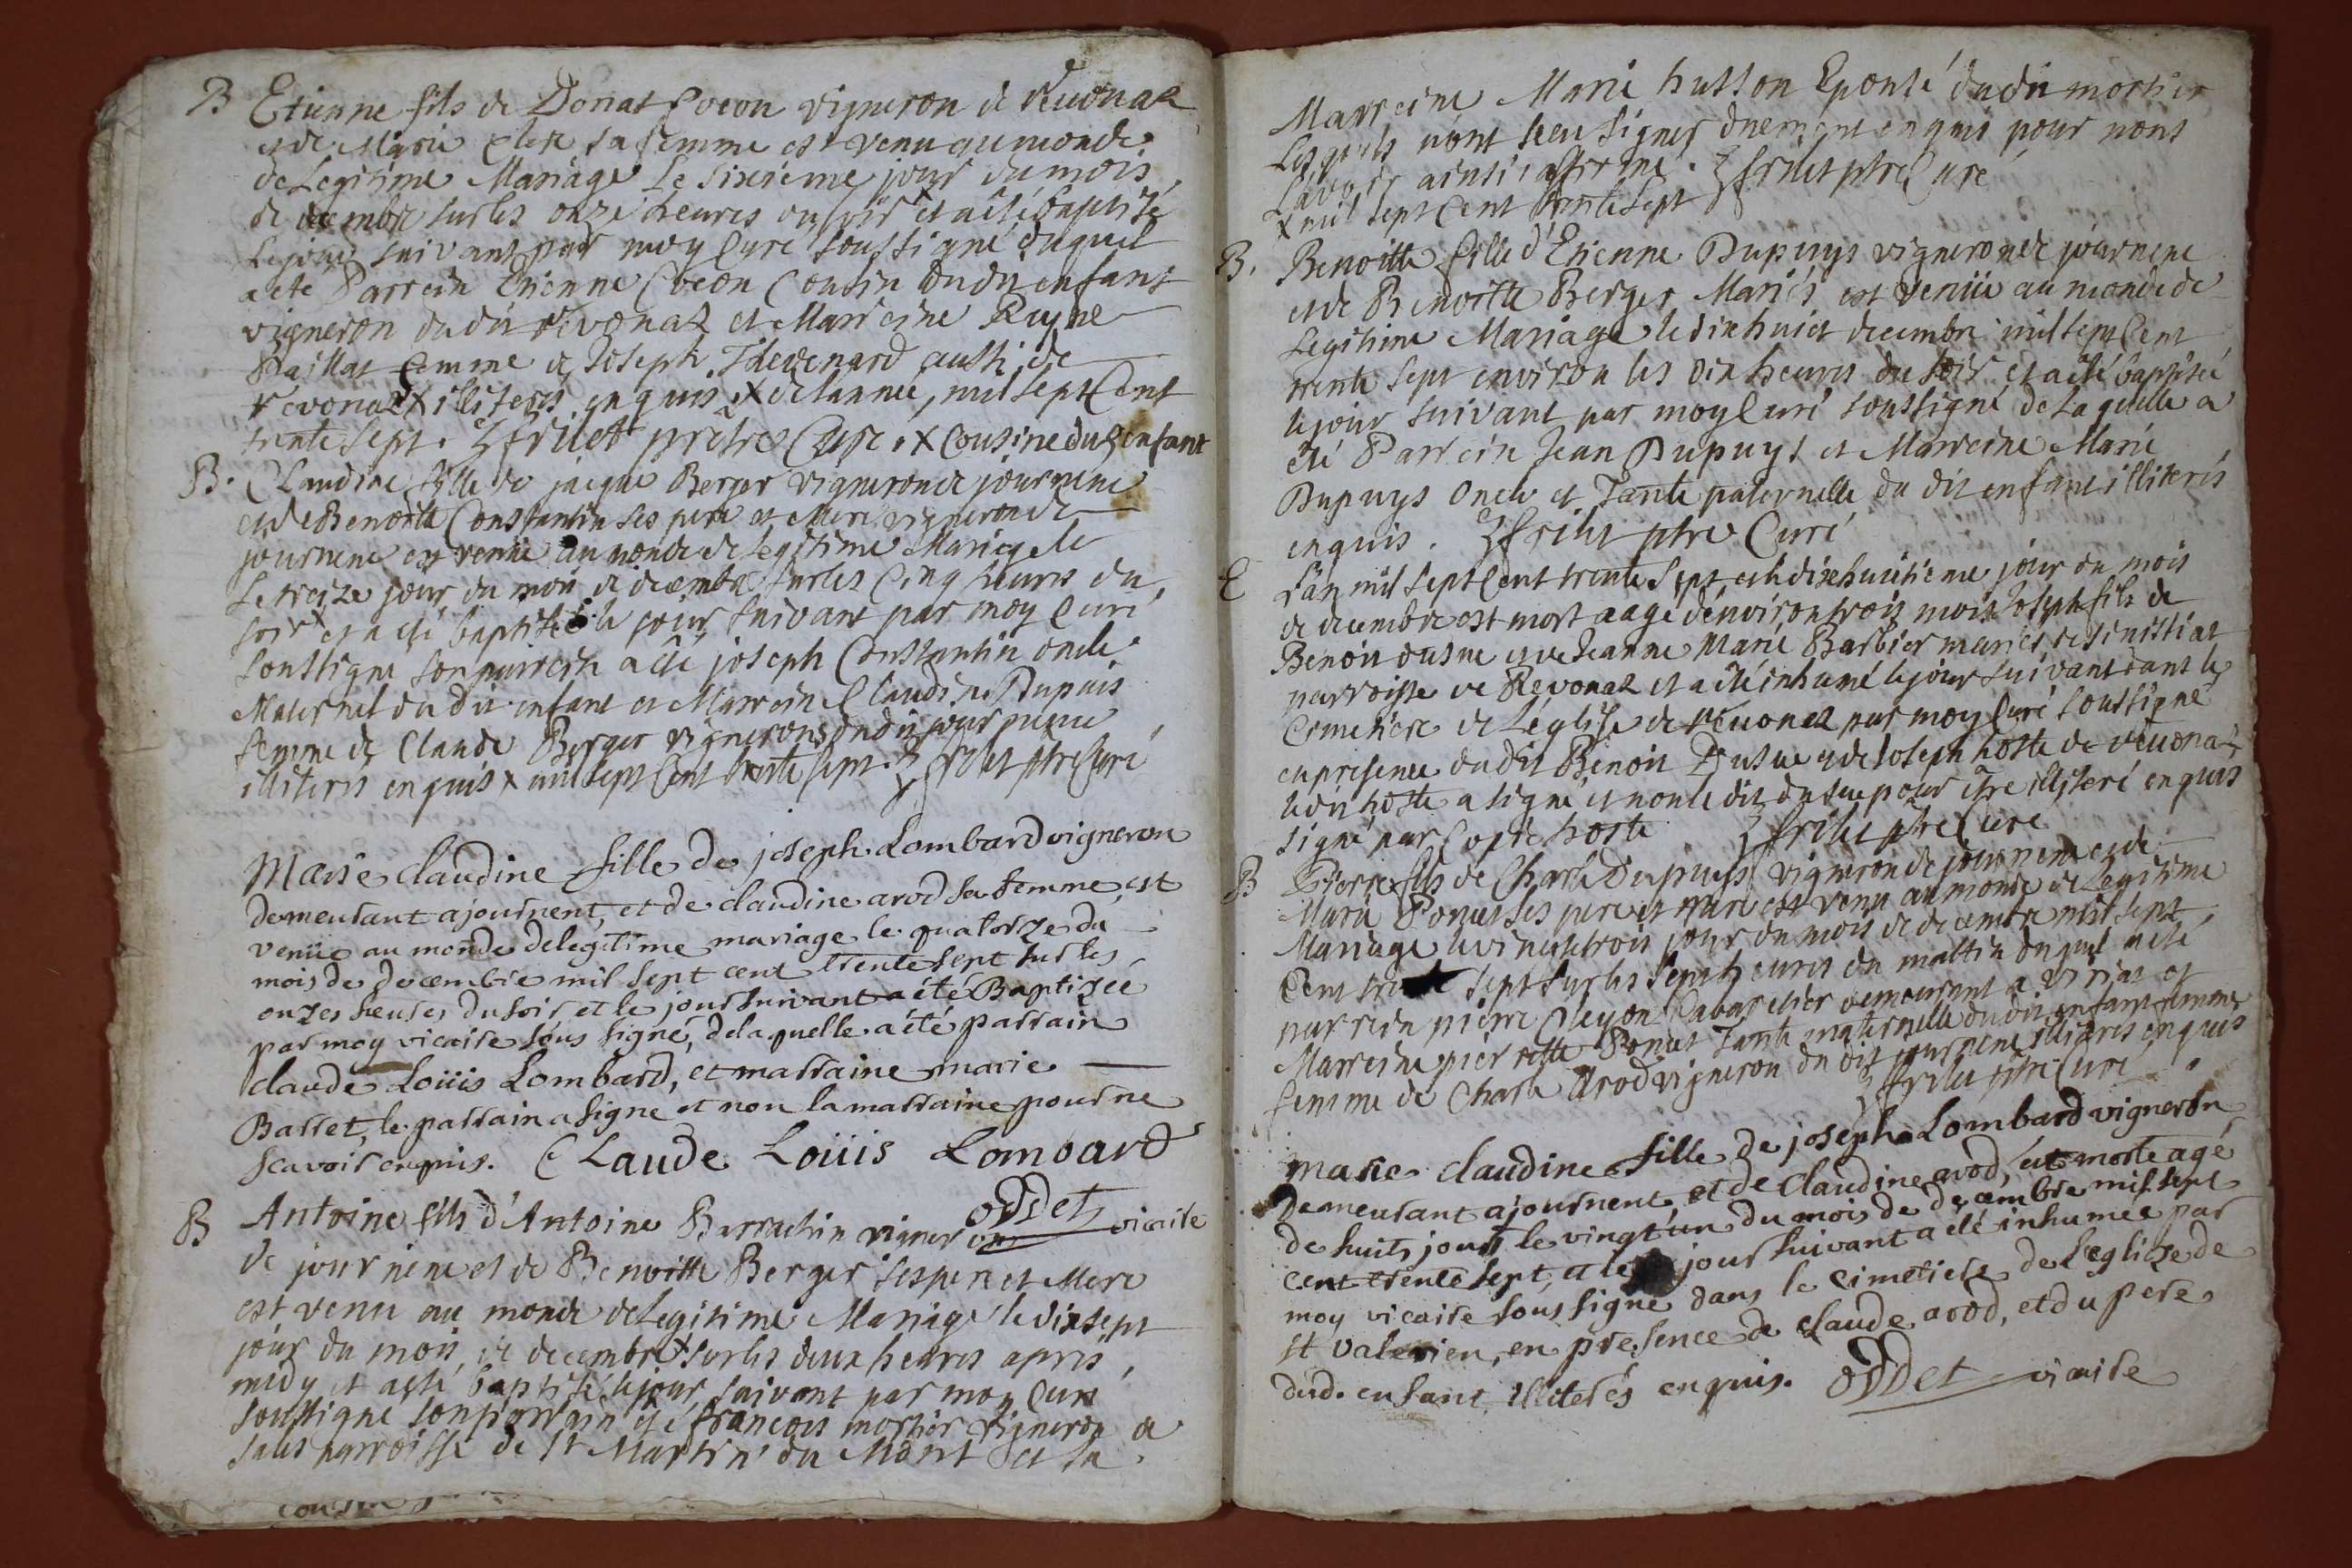 B Etienne fils de Donat Cocon vigneron de Revonaz
et de Marie Clere sa femme est venu au monde
de Legitime Mariage Le sixieme jour du mois
de decembre sur les onze heures du soir et a été baptisé
le jour suivant par moy Curé soussigné duquel
a eté Parrein Etienne Cocon Cousin dudit enfant
vigneron dudit Revonaz et Marreine
Paillat femme de Joseph Thevenard aussi de
Revonaz X illiteres enquis X de lannée mil sept Cent
trente sept. fruet pretre Curé. X Cousine dud enfant
B. Claudine fille de jacque Berger vigneron de journene
et de Benoitte Constantin ses pere et Mere vigneron de
journene est venuë au monde de legitime Mariage le
Le treize jour du mois de decembre sur les Cinq heures du
soir X et a eté baptisée le jour suivant par moy Curé
soussigné son parrein a eté joseph Constantin oncle
Maternel du dit enfant et Marreine Claudine Dupuis
femme de Claude Berger vignerons dudit journene
illiteres enquis X mil sept Cent trente sept. fruet ptre Curé
Marie claudine fille de joseph Lombard vigneron
demeurant a journent, et de claudine arod sa femme, est
venüe au monde de legitime mariage le quatorze du
mois de decembre mil sept cent trente sept sur les
onzes heures du soir et le jour suivant a été Baptizée
par moy vicaire sous signé, de laquelle a été parrain
claude Loüis Lombard, et marraine marie
Basset, le parrain a signe et non la marraine pour ne
scavoir enquis. Claude Loüis Lombard
oddet vicaire
B Antoine fils d'Antoine Barrachin vigneron
de journene et de Benoitte Berger ses pere et Mere
est venu au monde de Legitime Mariage le dix sept
jour du mois de decembre X sur les deux heures apres
midy et a eté baptisé le jour suivant par moy Curé
soussigné son parrain eté francois mortier vigneron a
Salis parroisse de St Martin du Mont et sa
Marreine Marie husson Epouse dudit mortier
Lesquels n'ont sceu signer duement enquis pour nons
l'avoir ainsi affirmé. fruet ptre Curé
X mil sept Cent trente sept
B. Benoitte fille d'Etienne Dupuys vigneron de journene
et de Benoitte Berger Mariés est venüe au monde de
Legitime Mariage le dix huict decembre mil sept Cent
trente sept environ les dix heures du soir et a eté baptisée
le jour suivant par moy Curé soussigné de Laquelle a
eté Parrein Jean Dupuys et Marreine Marie
Dupuys oncle et Tante paternelle du dit enfant illiterés
enquis. fruet ptre Curé
E L'an mil sept Cent trente sept et le dixehuitieme jour du mois
de decembre est mort aagé d'environ trois mois Joseph fils de
Benoit dusue et de Jeanne Marie Barbier mariés de sinissiat
parroisse de Revonaz et a été inhumé le jour suivant dans le
Cimetiere de L'église de Revonaz par moy Curé soussigné
en presence dudit Benoit Dusue et de Joseph hoste de Revonaz
ledit hoste a signé et non le dit dusue pour être illiteré enquis
signé par Copie hoste fruet ptre Curé
B Pierre fils de Charle Dupuys vigneron de journene et de
Marie Ponus ses pere et mere est venu au monde de Legitime
Mariage le vingt trois jour du mois de decembre mil sept
Cent trente sept sur les sept heures du mattin duquel a eté
parrein pierre Cleyon Cabaretier demeurant a Virias et
Marreine pierrette Ponus Tante maternelle dudit enfant femme
femme de Charle Arod vigneron du dit journene illiteres enquis
fruet ptre Curé
marie claudine fille de joseph Lombard vigneron
Demeurant a journent, et de Claudine arod, est morte agé
de huits jours le vingt un du mois de decembre mil sept
cent trente sept, et le jour suivant a été inhumée par
moy vicaire sous signé dans le cimetiere de l'eglize de
st valerien, en presence de claude arod, et du pere
dud. enfant illiterés enquis. oddet vicaire